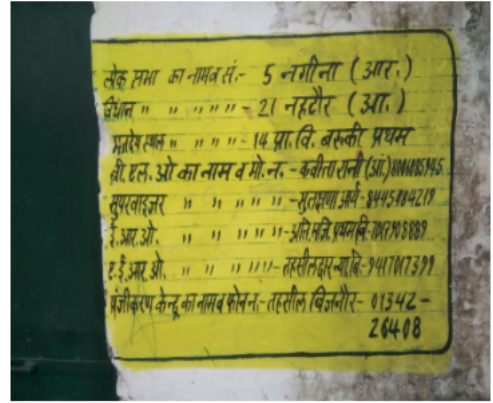 लोक सभा का नाम व सं.- 5 नगीना (आर.)
विधान " " " " "- 21 नहटौर (आ.)
मतदेय स्थल " " " "- 14 प्रा. वि. बरुकी प्रथम
बी.एल.ओ का नाम व मो.न.- कवीता रानी (आं.)
सुपरवाइजर " " " " "- आर्य- 8445884219
ई.आर.ओ. " " " " "- अति.मजि.प्रथम बि-
ए.ई.आर.ओ. " " " " "- तहसीलदार न्या.बि- 9417017399
पंजीकरण केन्द्र का नाम व फोन न.- तहसील बिजनौर- 01342-
26408